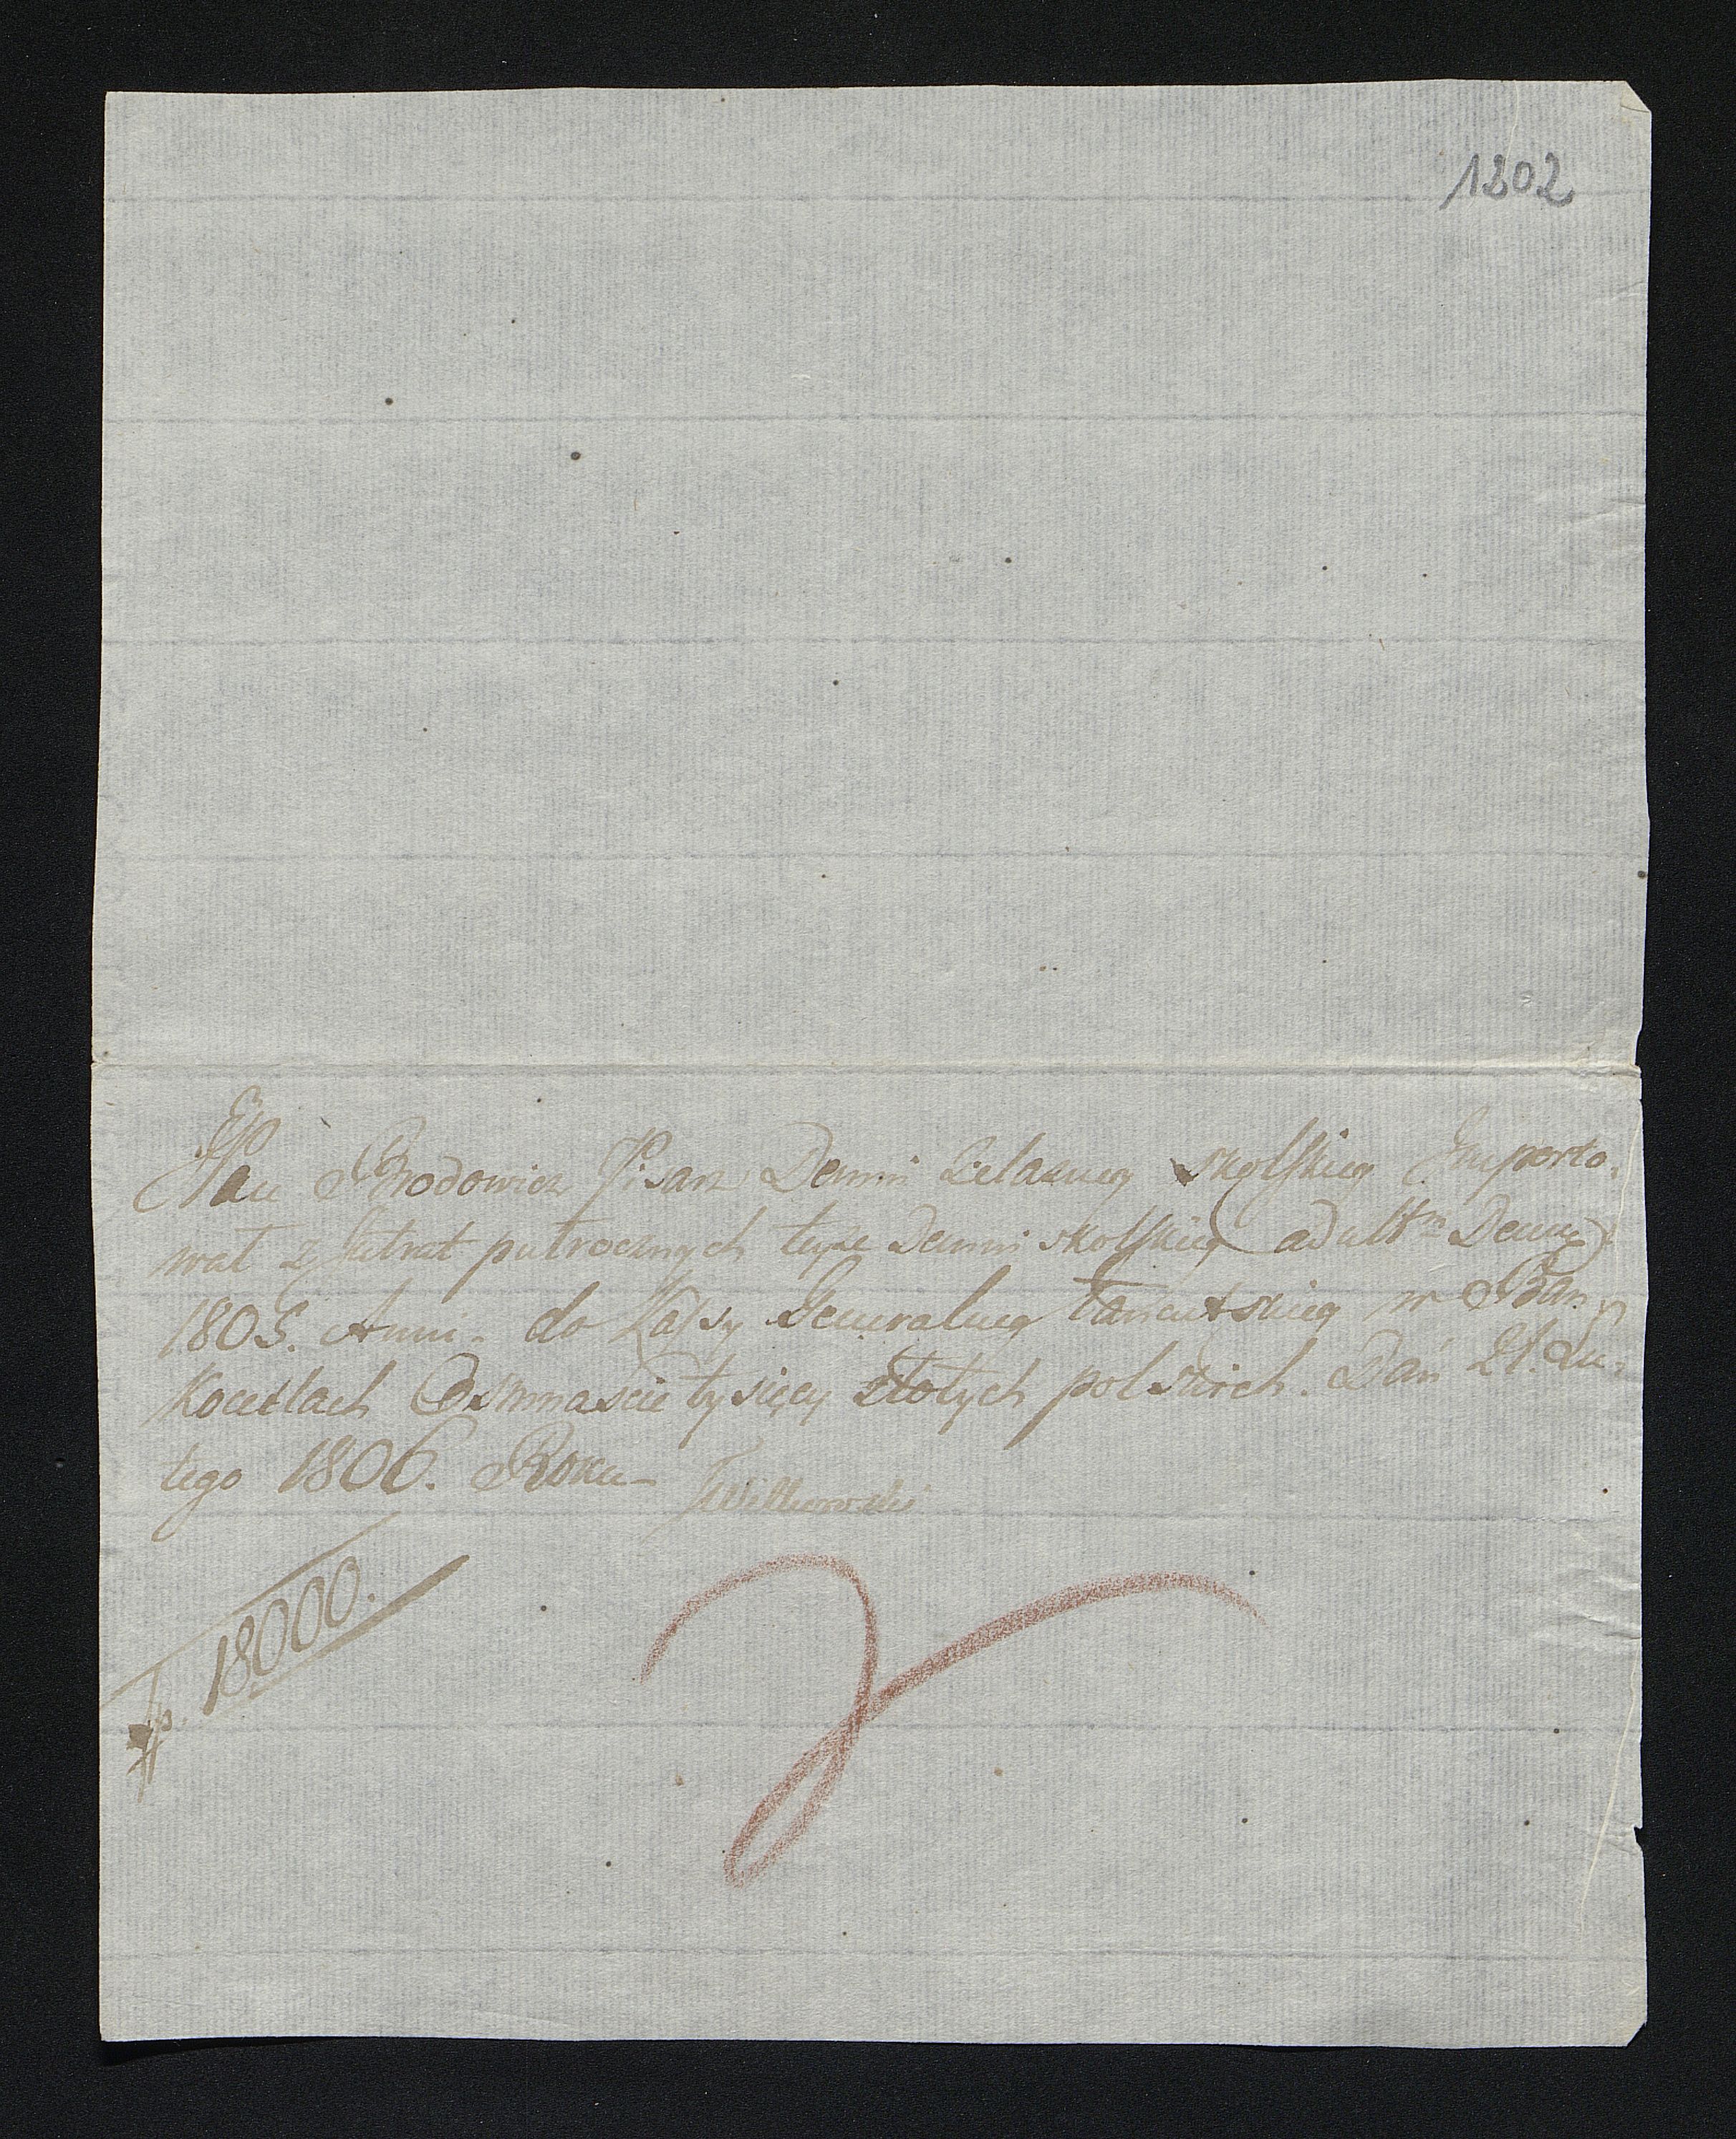 1202
Pan Brodowicz Pisarz Demni Żelazney skolskiey Importo-
wał z Intrat pułrocznych teyże Demni skolskiey ad ult: Decemb:
1805. Anni. do Kassy Generalney Łańcutskiey w Ban-
kocetlach Osmnaście tysięcy złotych polskich. Dań 21. Lu-
tego 1806. Roku
18000.